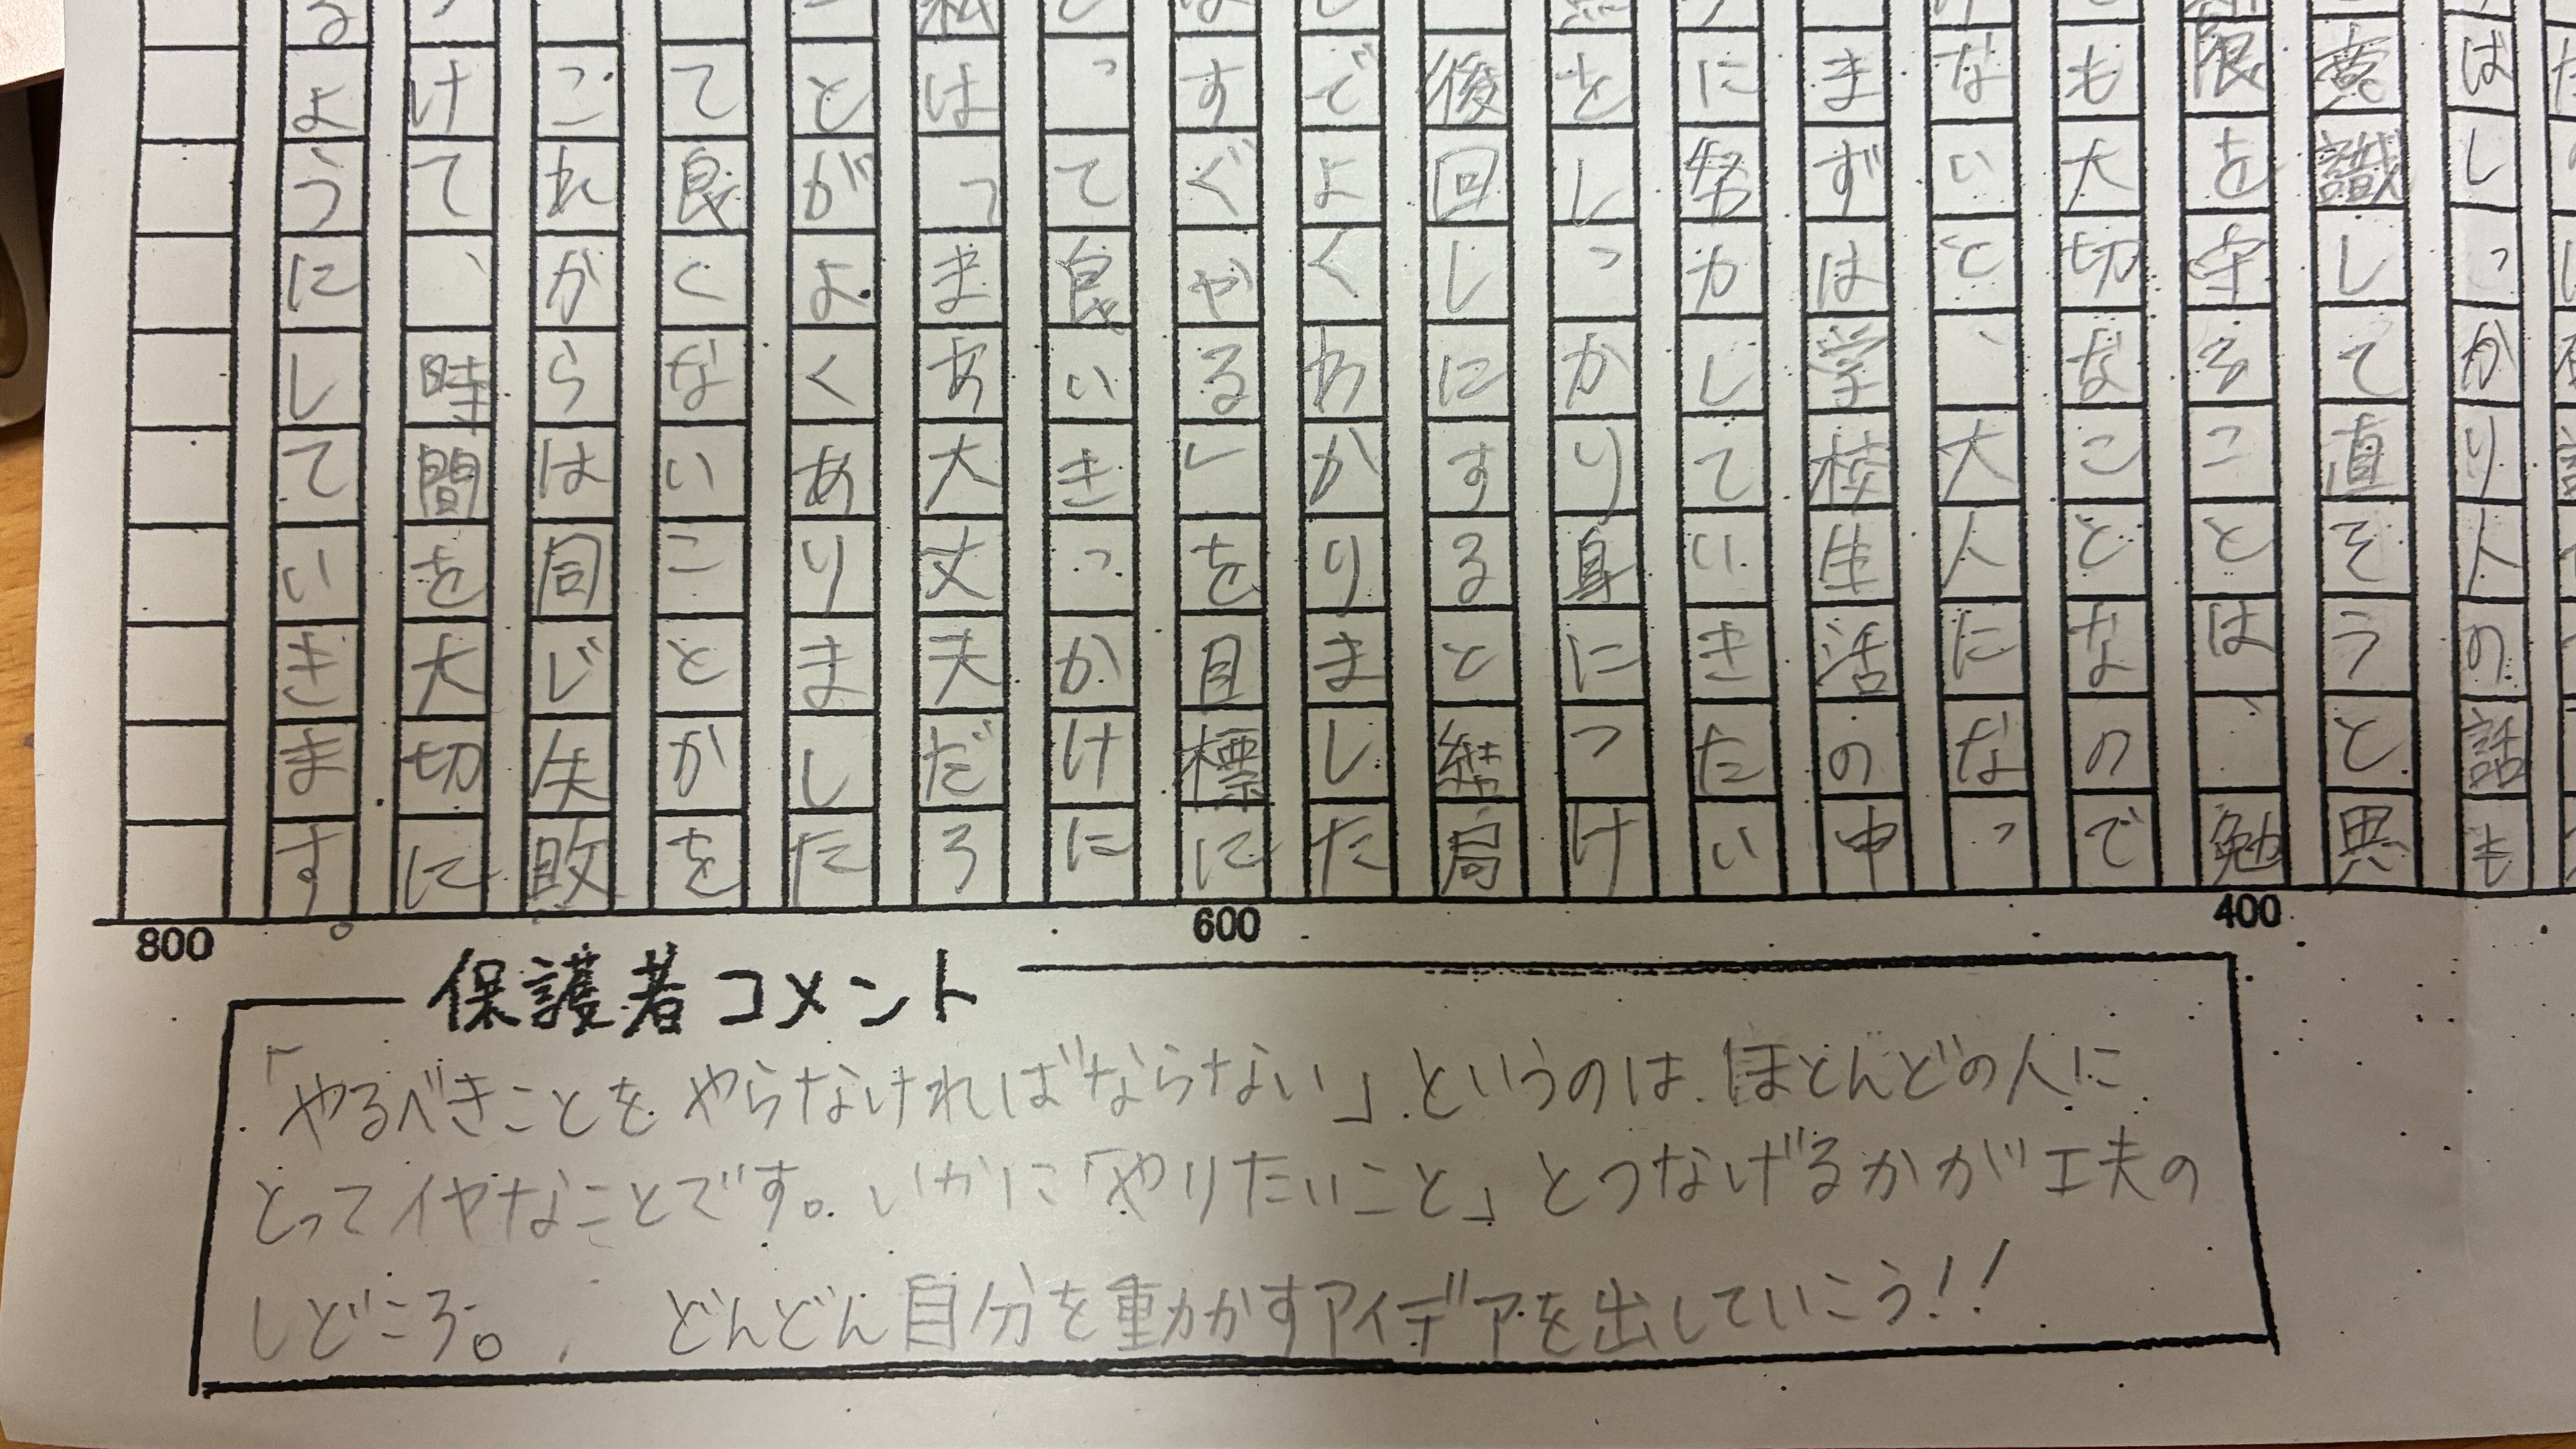 ばしっかり人の話も
意識して直そうと思
限を守ることは、勉
も大切なことなので
ないと、大人になっ
まずは学校生活の中
に努力していきたい
をしっかり身につけ
後回しにすると結局
でよくわかりました
すぐやる」を目標に
って良いきっかけに
は「まあ大丈夫だろ
とがよくありました
て良くないことかを
これからは同じ失敗
けて、時間を大切に
るようにしていきます。
400
600
800
保護者コメント
「やるべきことをやらなければならない」というのは、ほとんどの人に
とってイヤなことです。いかに「やりたいこと」とつなげるかが工夫の
しどころ。どんどん自分を動かすアイデアを出していこう!!